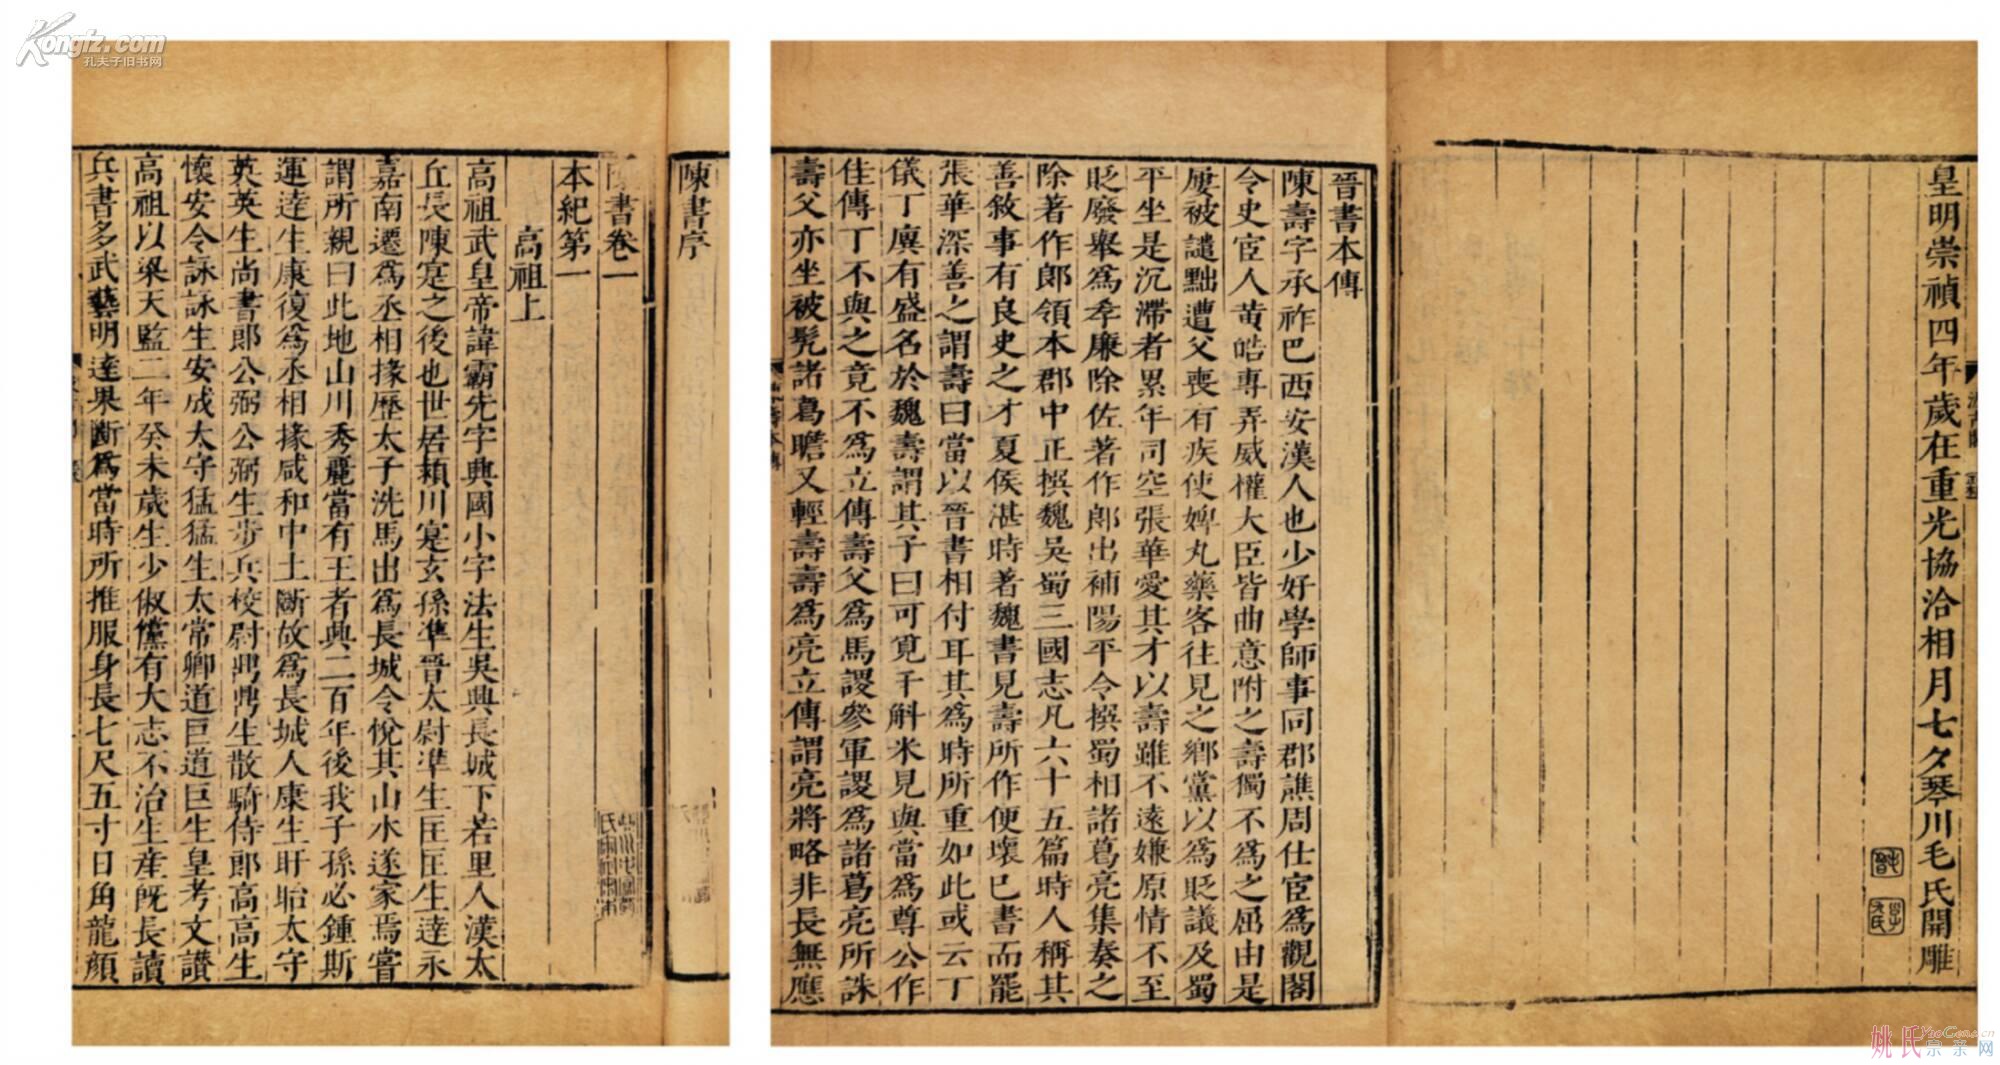 Kongfz.com
孔夫子旧书网
皇明崇禎四年歲在重光協洽相月七夕琴川毛氏開雕
晉書本傳
陳壽字承祚巴西安漢人也少好學師事同郡譙周仕宦爲觀閣
令史宦人黃皓專弄威權大臣皆曲意附之壽獨不爲之屈由是
屢被譴黜遭父喪有疾使婢丸藥客往見之鄉黨以爲貶議及蜀
平坐是沉滯者累年司空張華愛其才以壽雖不遠嫌原情不至
貶廢舉爲孝廉除佐著作郎出補陽平令撰蜀相諸葛亮集奏之
除著作郎領本郡中正撰魏吳蜀三國志凡六十五篇時人稱其
善敘事有良史之才夏侯湛時著魏書見壽所作便壞已書而罷
張華深善之謂壽曰當以晉書相付耳其爲時所重如此或云丁
儀丁廙有盛名於魏壽謂其子曰可覓千斛米見與當爲尊公作
佳傳丁不與之竟不爲立傳壽父爲馬謖參軍謖爲諸葛亮所誅
壽父亦坐被髡諸葛瞻又輕壽壽爲亮立傳謂亮將略非長無應
陳書序
陳書卷一
本紀第一
高祖上
高祖武皇帝諱霸先字興國小字法生吳興長城下若里人漢太
丘長陳寔之後也世居潁川寔玄孫準晉太尉準生匡匡生達永
嘉南遷爲丞相掾歷太子洗馬出爲長城令悅其山水遂家焉嘗
謂所親曰此地山川秀麗當有王者興二百年後我子孫必鍾斯
運達生康復爲丞相掾咸和中土斷故爲長城人康生盱眙太守
英英生尚書郎公弼公弼生步兵校尉鼎鼎生散騎侍郎高高生
懷安令詠詠生安成太守猛猛生太常卿道巨道巨生皇考文讃
高祖以梁天監二年癸未歲生少俶儻有大志不治生產旣長讀
兵書多武藝明達果斷爲當時所推服身長七尺五寸日角龍顏
姚氏宗亲网
YaoGens.cn